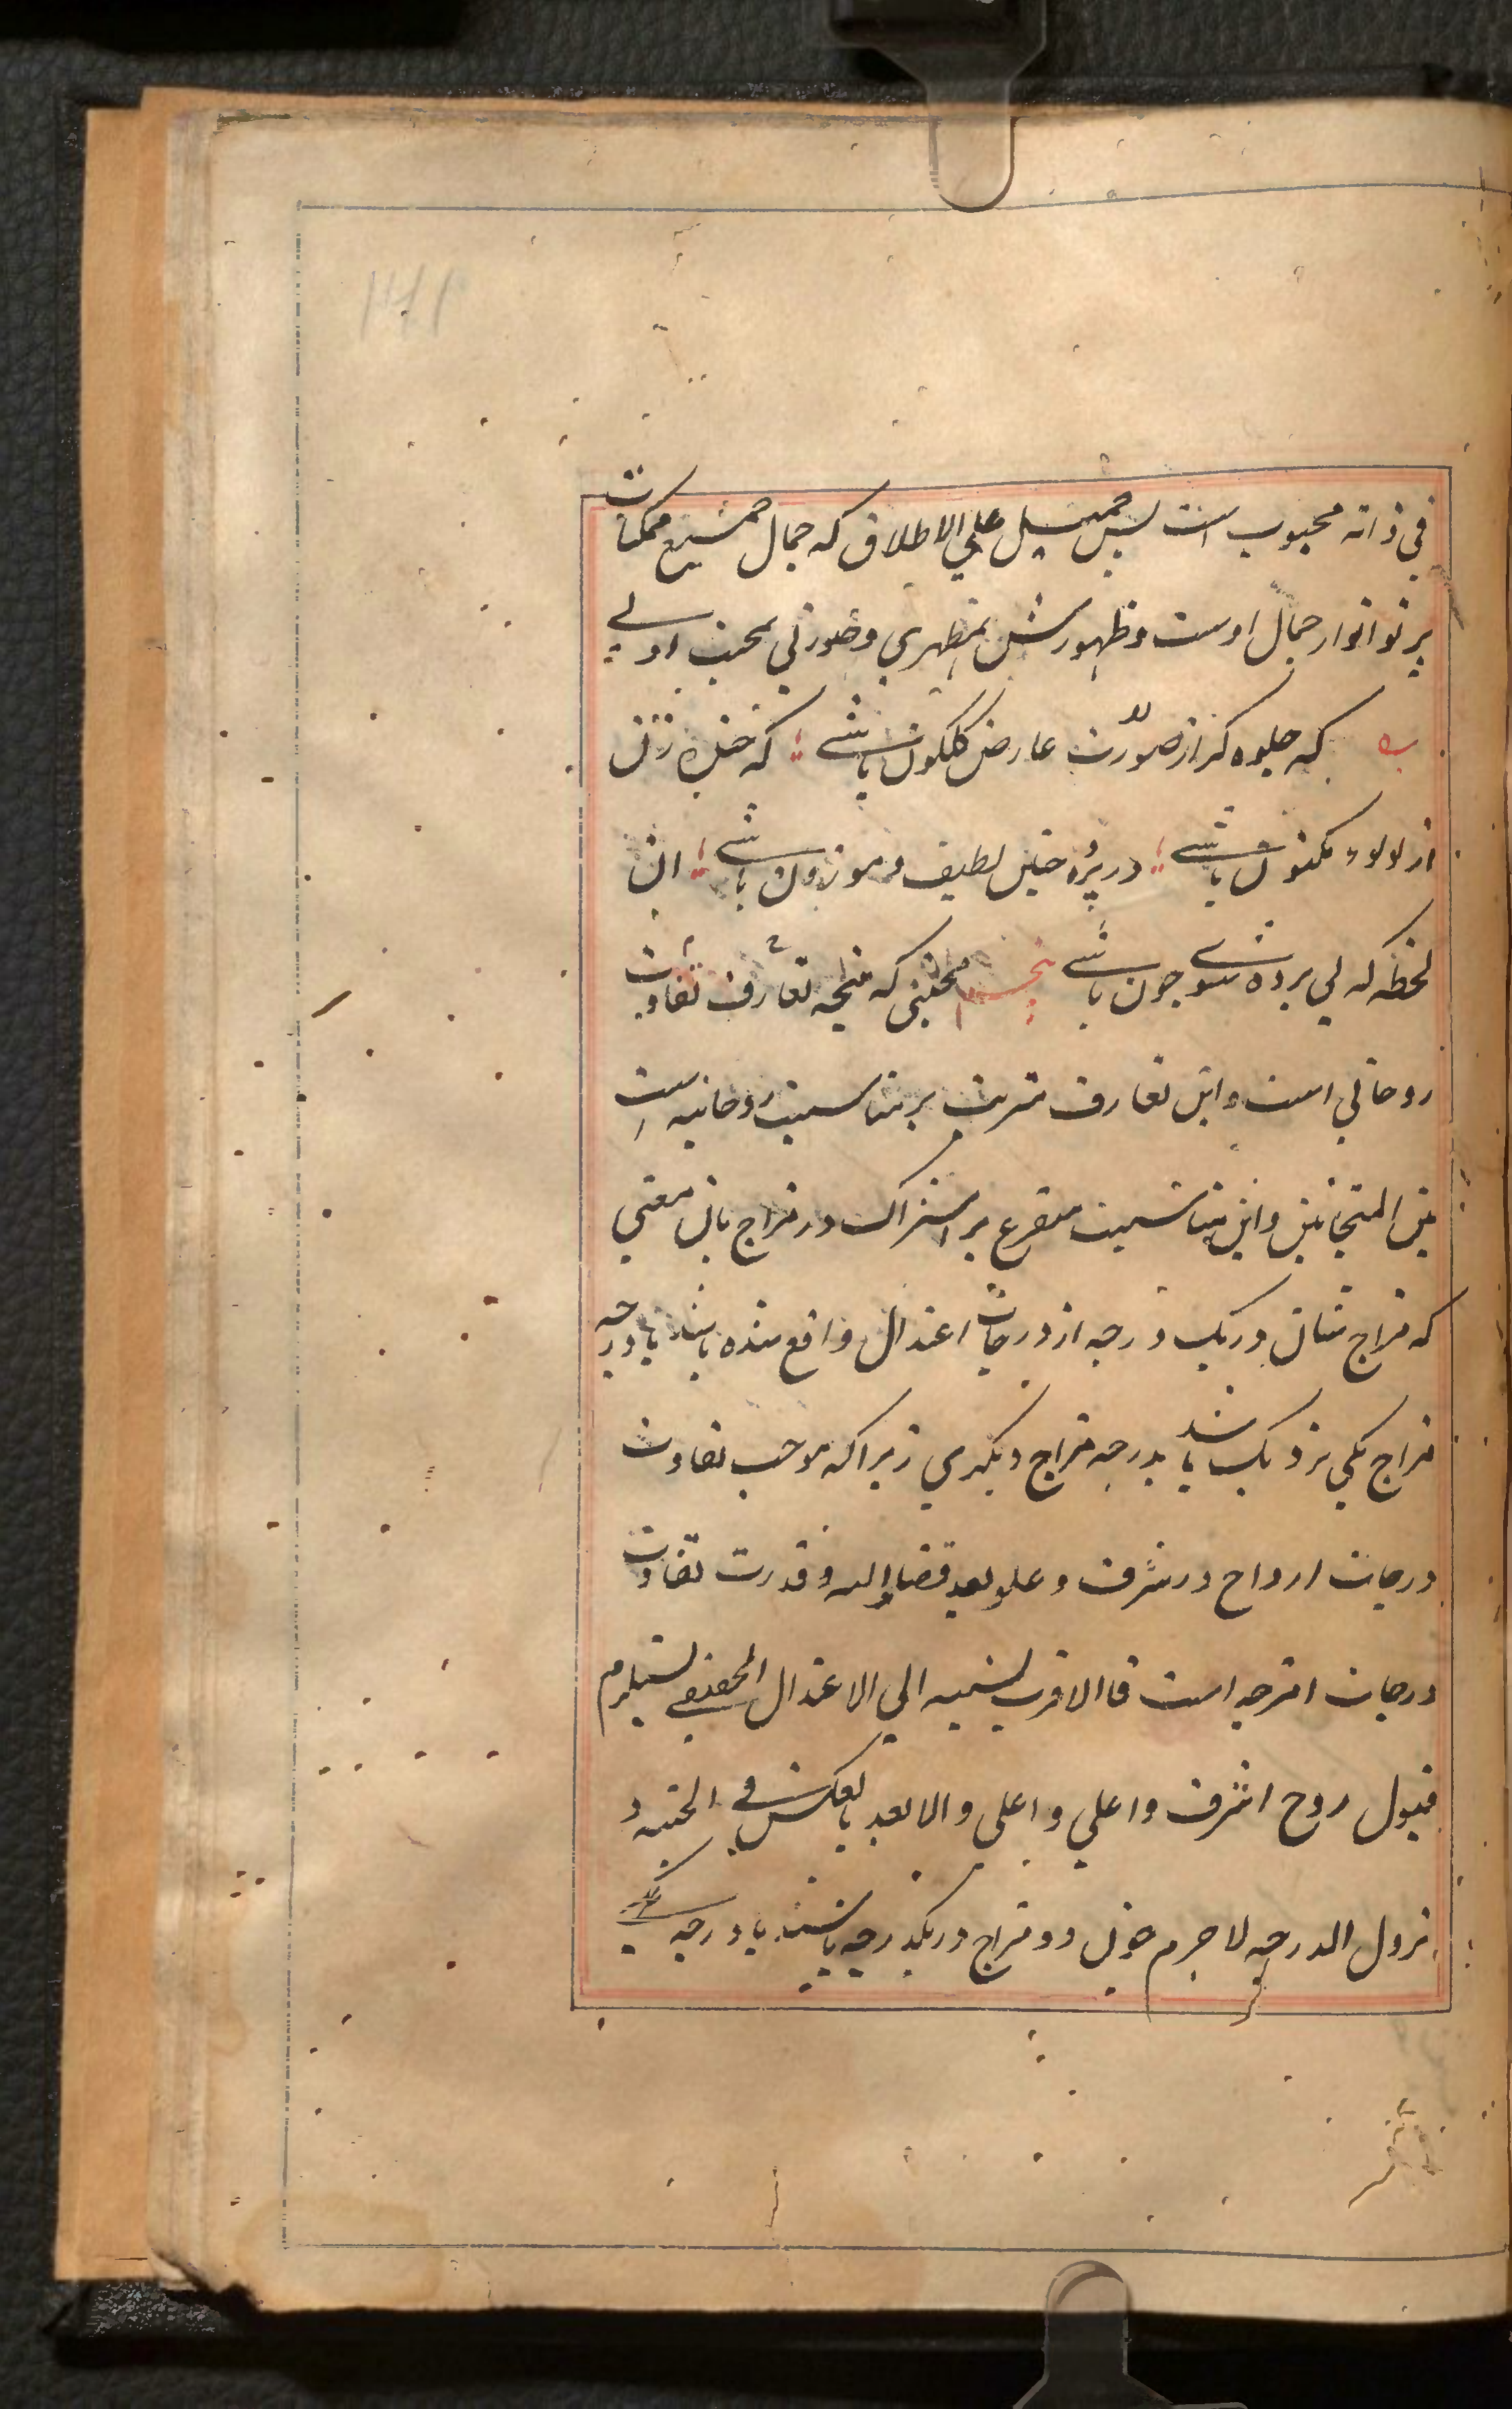 في ذاته محبوب است پس جمیل علي الاطلاق که جمال جمیع ممکنات
پرتو انوار جمال اوست و ظهورش بمظهري و صورتی محبت اولی
که جلوه کر از صورت عارض کلکون باشے که خنده زنان
از لولوء مکنون باشے در پرده چنین لطیف و موزون باشے ان
لحظه که بی پرده شوے چون باشے پنجم محبتی که نتیجه تعارف
روحاني است و این تعارف مترتب بر مناسبت روحانیه است
بین المتحابین و این مناسبت متفرع بر اشتراک در مزاج باین معني
که مزاج شان در یک درجه از درجات اعتدال واقع شده باشد یا درجه
مزاج یکي نزدیک باشد بدرجه مزاج دیکري زیرا که موجب تفاوت
درجات ارواح در شرف و علو بعد قضا الله و قدرت تفاوت
درجات امزجه است فا الاقرب نسبیه الي الاعتدال الحقیقے یستلزم
قبول روح اشرف و اعلي و اعلی و الابعد بالعکس في الخسه و
نزول الدرجه لا جرم چون دو مزاج در یکدرجه باشند یا درجه یکے